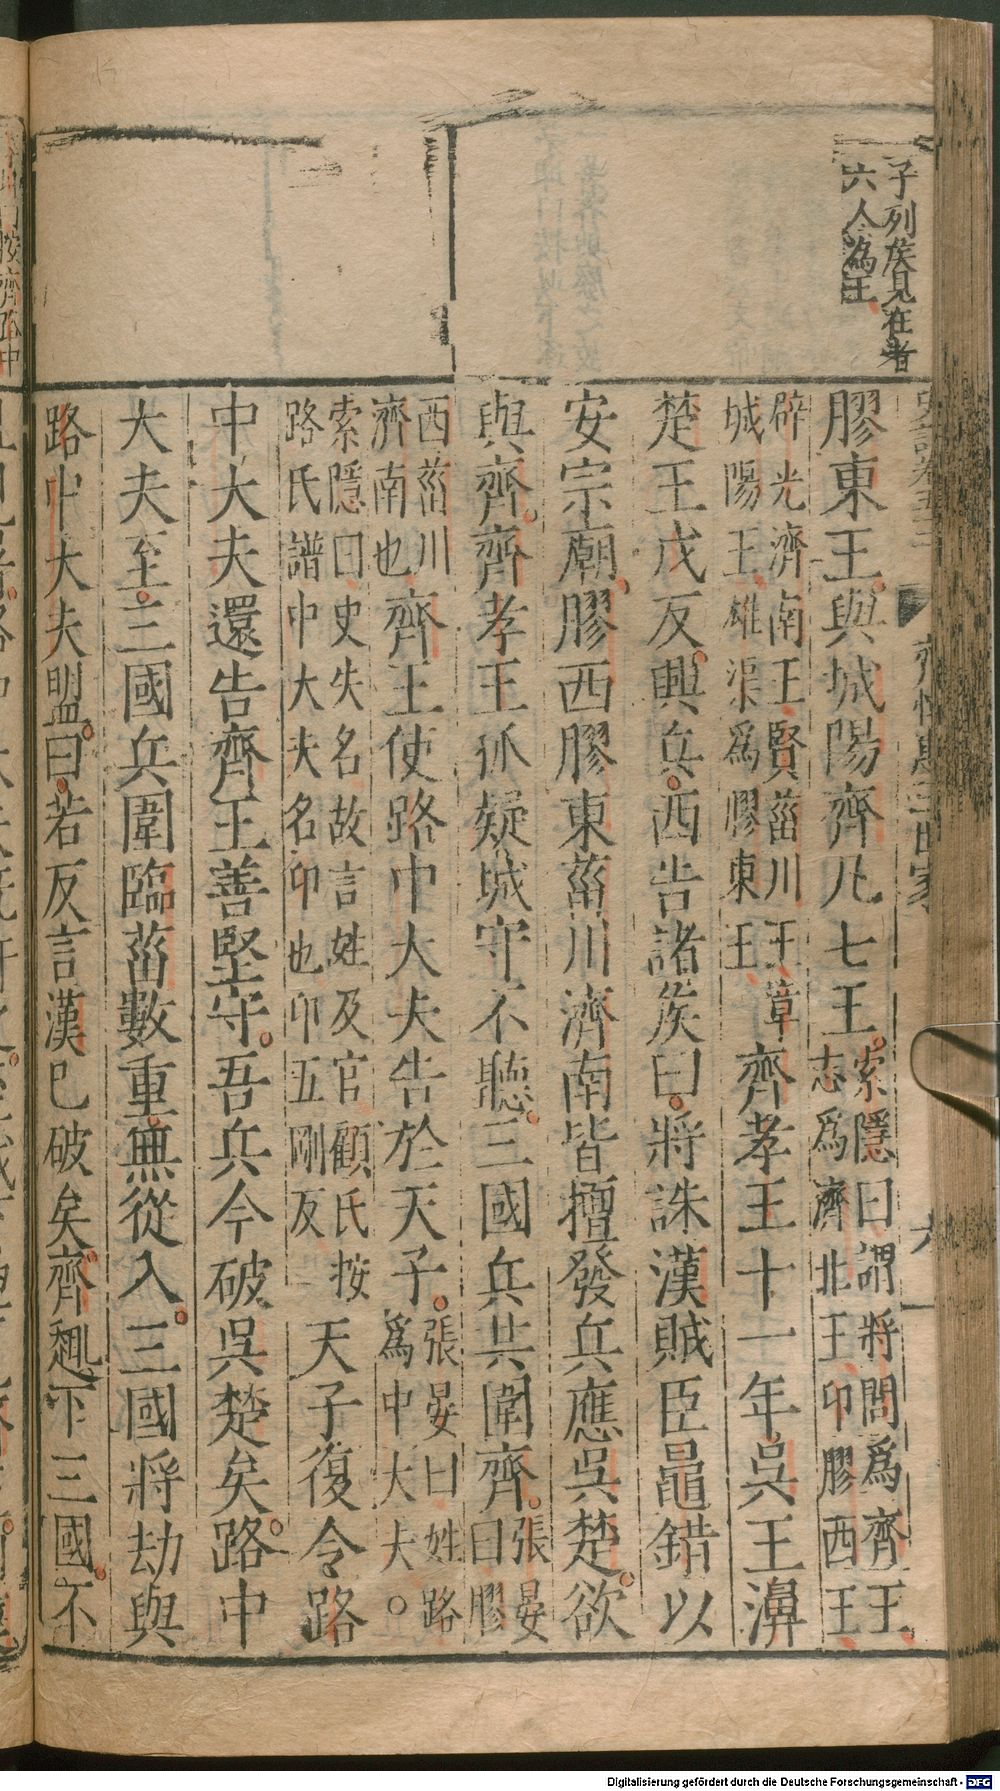 子列矦見在者
六人為王
膠東王與城陽齊凡七王。索隱曰謂將閭爲齊王
志爲濟北王卬膠西王
辟光濟南王賢菑川王章
城陽王雄渠爲膠東王
齊孝王十一年吳王濞
楚王戊反興兵。西告諸矦曰。將誅漢賊臣鼂錯以
安宗廟。膠西膠東菑川濟南皆擅發兵應吳楚。欲
與齊。齊孝王狐疑城守不聽。三國兵共圍齊。張晏
曰膠
西菑川
濟南也
齊王使路中大夫告於天子。張晏曰姓路
爲中大夫。
索隱曰史失名故言姓及官顧氏按
路氏譜中大夫名卬也卬五剛反
天子復令路
中大夫還告齊王善堅守。吾兵今破吳楚矣。路中
大夫至。三國兵圍臨菑數重無從入。三國將劫與
路中大夫盟。曰。若反言漢巳破矣。齊趣下三國。不
六
Digitalisierung gefördert durch die Deutsche Forschungsgemeinschaft - DFG